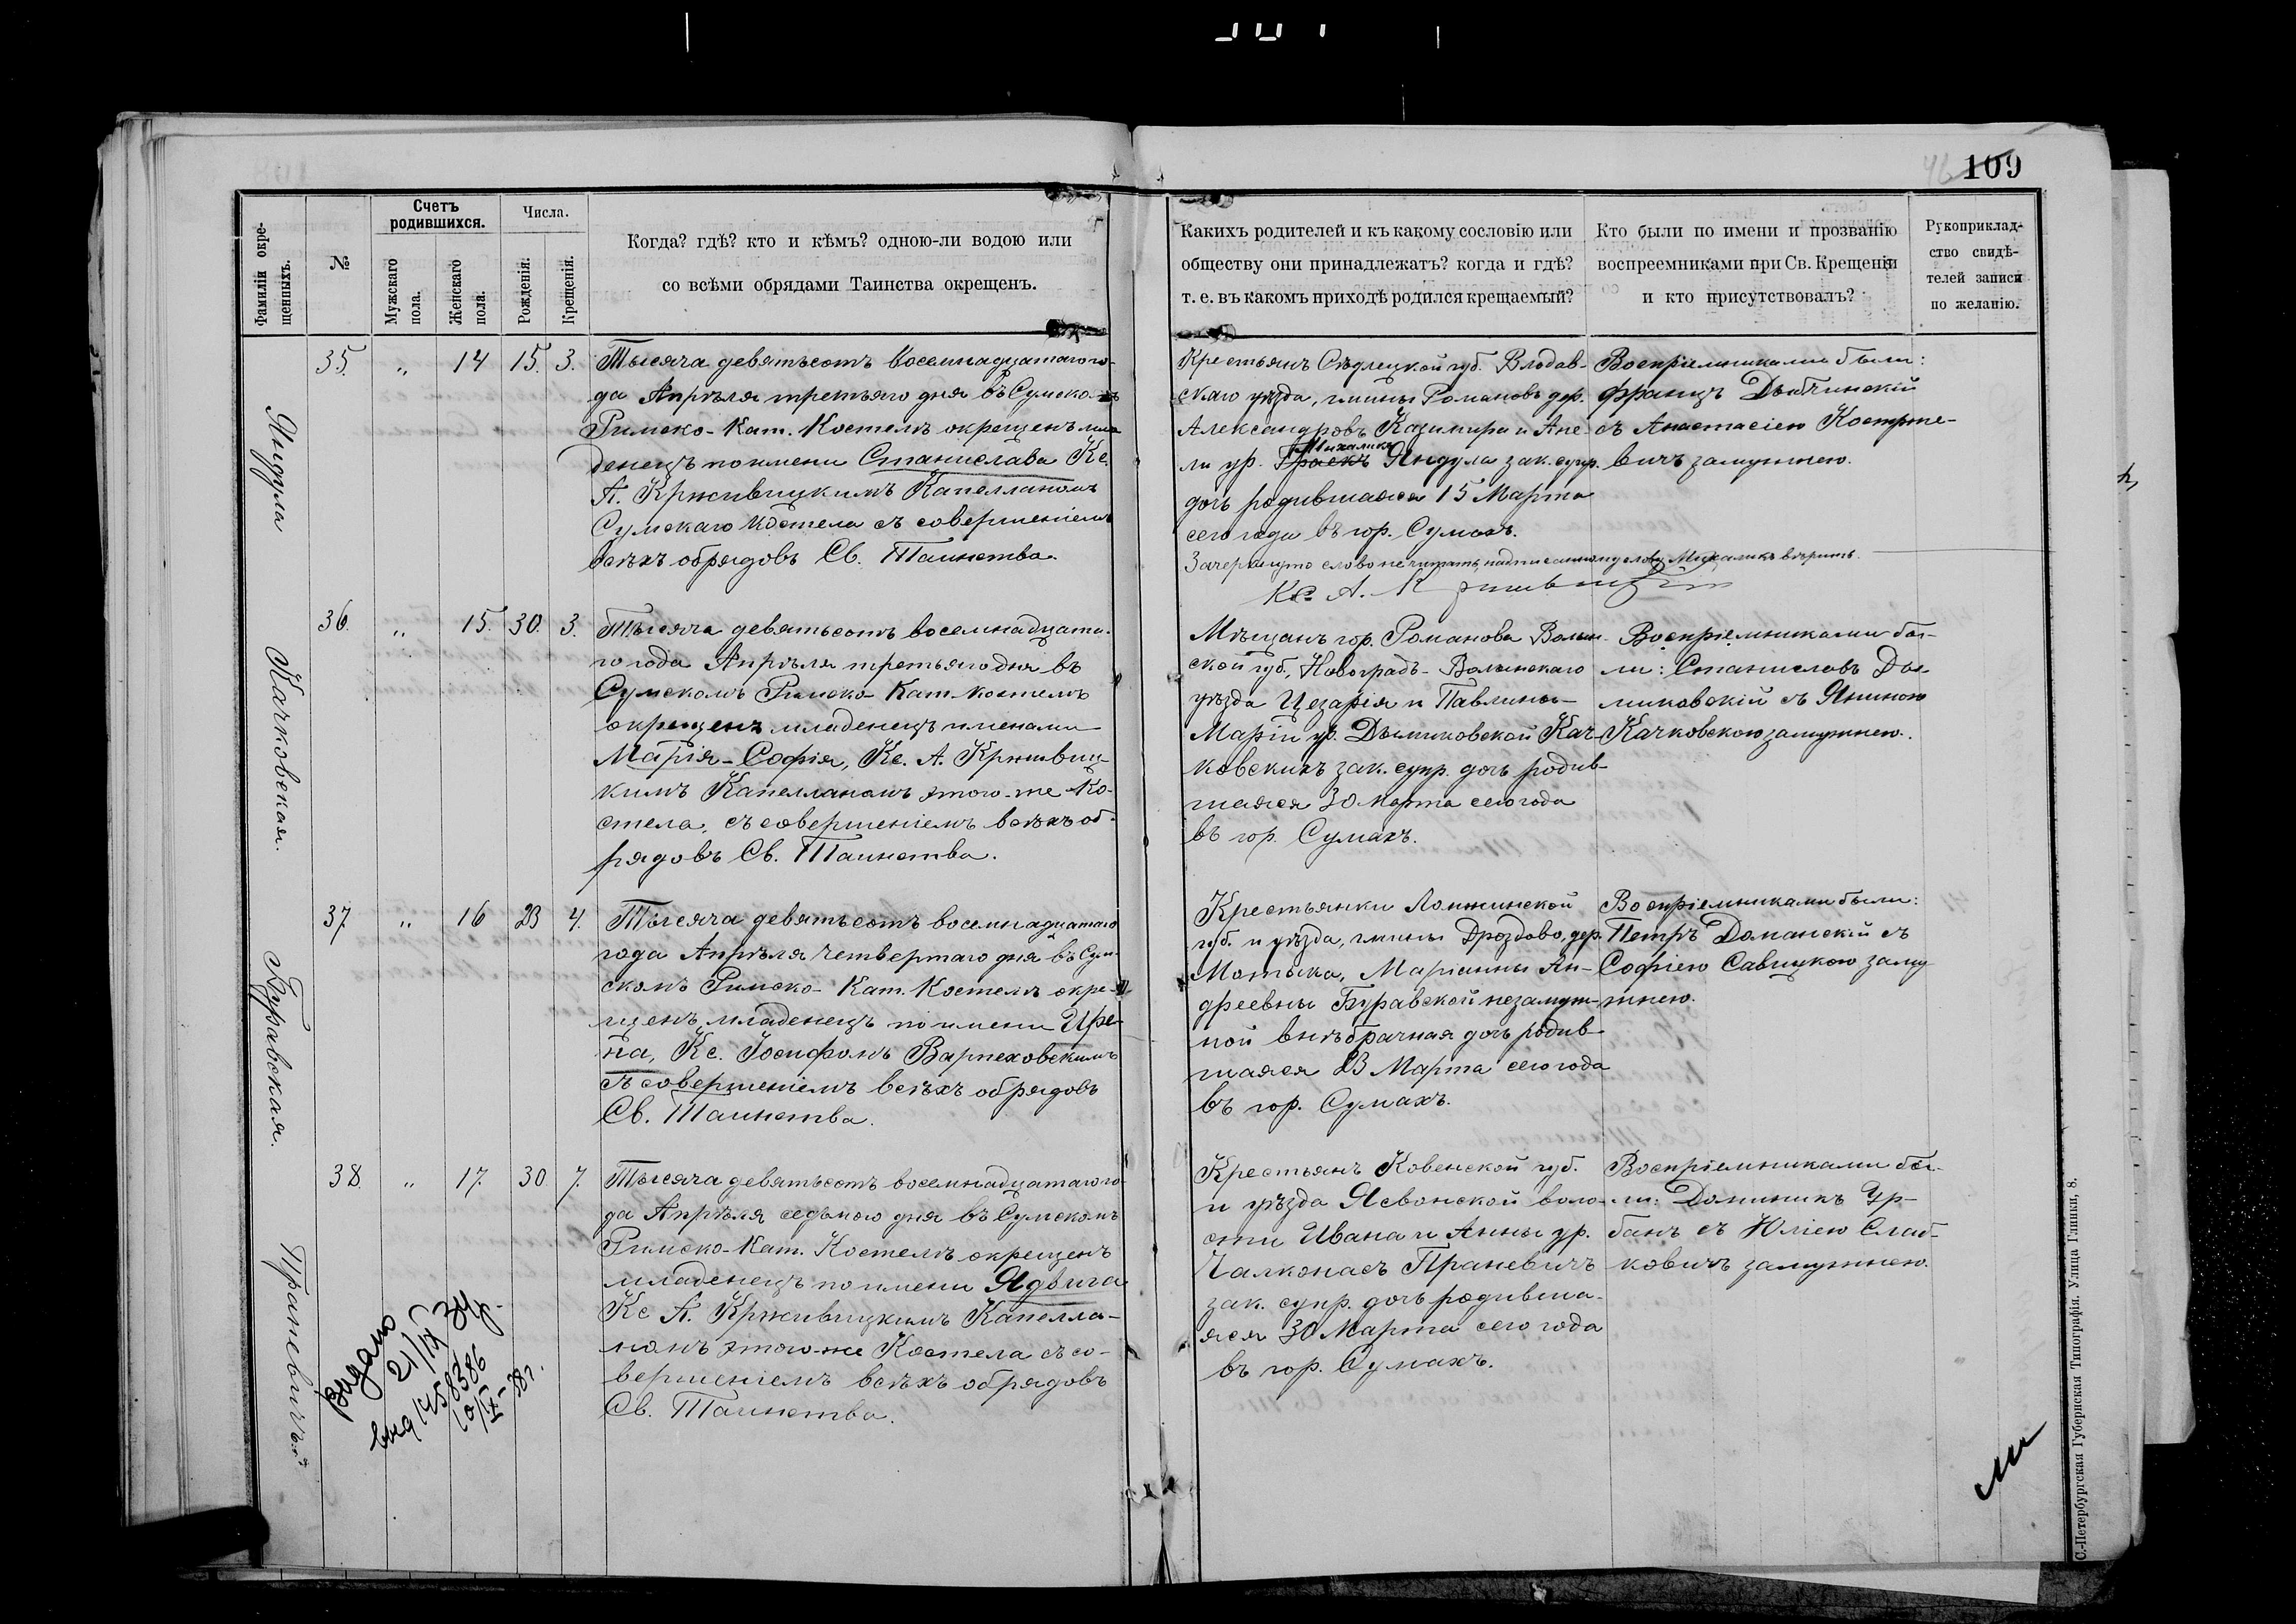 109
46
Фамиліи окре-
щенныхъ.
№
Счетъ
родившихся.
Мужскаго
пола.
Женскаго
пола.
Числа.
Рожденія.
Крещенія.
Когда? гдѣ? кто и кѣмъ? одною-ли водою или
со всѣми обрядами Таинства окрещенъ.
Какихъ родителей и къ какому сословію или
обществу они принадлежатъ? когда и гдѣ?
т. е. въ какомъ приходѣ родился крещаемый?
Кто были по имени и прозванію
воспреемниками при Св. Крещеніи
и кто присутствовалъ?
Рукоприклад-
ство свидѣ-
телей записи
по желанію.
Яндула
35. „ 14 15. 3.
Тысяча девятьсотъ восемнадцатаго го-
да Апрѣля третьяго дня въ Сумскомъ
Римско-Кат. Костелѣ окрещенъ мла
денецъ по имени Станислава Кс.
А. Крживицкимъ Капелланомъ
Сумскаго Костела съ совершеніемъ
всѣхъ обрядовъ Св. Таинства.
Крестьянъ Сѣдлецкой губ. Влодав-
скаго уѣзда, гмины Романовъ дер.
Александровъ Казимира и Ане-
Михаликъ
ли ур. Яндула зак. супр.
дочь родившаяся 15 Марта
сего года въ гор. Сумахъ.
Зачеркнуто слово не читать, надписанному слову Михаликъ вѣрить.
Кс. А. Крживицкій
Воспріемниками были:
Францъ
съ Анастасіею Кострже-
вичъ замужнею.
Качковская.
36. „ 15. 30. 3.
Тысяча девятьсотъ восемнадцата-
го года Апрѣля третьяго дня въ
Сумскомъ Римско-Кат. костелѣ
окрещенъ младенецъ именами
Марія-Софія, Кс. А. Крживиц-
кимъ Капелланомъ этого-же Ко-
стела, съ совершеніемъ всѣхъ об-
рядовъ Св. Таинства.
Мѣщанъ гор. Романова Волын-
ской губ., Новоградъ-Волынскаго
уѣзда Цезарія и Павлины-
Маріи ур. Дыминовской Кач-
ковскихъ зак. супр. дочь родив-
шаяся 30 Марта сего года
въ гор. Сумахъ.
Воспріемниками бы-
ли: Станиславъ Ды-
миновскій съ Яниною
Качковскою замужнею.
Буравская.
37. „ 16 23 4.
Тысяча девятьсотъ восемнадцатаго
года Апрѣля четвертаго дня въ Сум-
скомъ Римско-Кат. Костелѣ окре-
щенъ младенецъ по имени Ире-
на, Кс. Іосифомъ Варпеховскимъ
съ совершеніемъ всѣхъ обрядовъ
Св. Таинства.
Крестьянки Ломжинской
губ. и уѣзда, гмины Дроздово, дер.
Мотыка, Маріанны Ан-
дреевны Буравской незамуж-
ной внѣбрачная дочь родив-
шаяся 23 Марта сего года
въ гор. Сумахъ.
Воспріемниками были:
Петръ Доманскій съ
Софіею Савицкою заму
жнею.
Праневичъ
38. „ 17. 30. 7.
Тысяча девятьсотъ восемнадцатаго го-
да Апрѣля седьмого дня въ Сумскомъ
Римско-Кат. Костелѣ окрещенъ
младенецъ по имени Ядвига
Кс А. Крживицкимъ Капелла-
номъ этого-же Костела съ со-
вершеніемъ всѣхъ обрядовъ
Св. Таинства.
Крестьянъ Ковенской губ.
и уѣзда Ясвонской воло-
сти Ивана и Анны ур.
Чалконасъ Праневичъ
зак. супр. дочь родивша-
яся 30 Марта сего года
въ гор. Сумахъ.
Воспріемниками бы-
ли: Доминикъ Ур-
банъ съ Юліею Слад-
ковичъ замужнею.
видано
21/IX
10/IX-38г.
С.-Петербургская Губернская Типографія. Улица Глинки, 8.